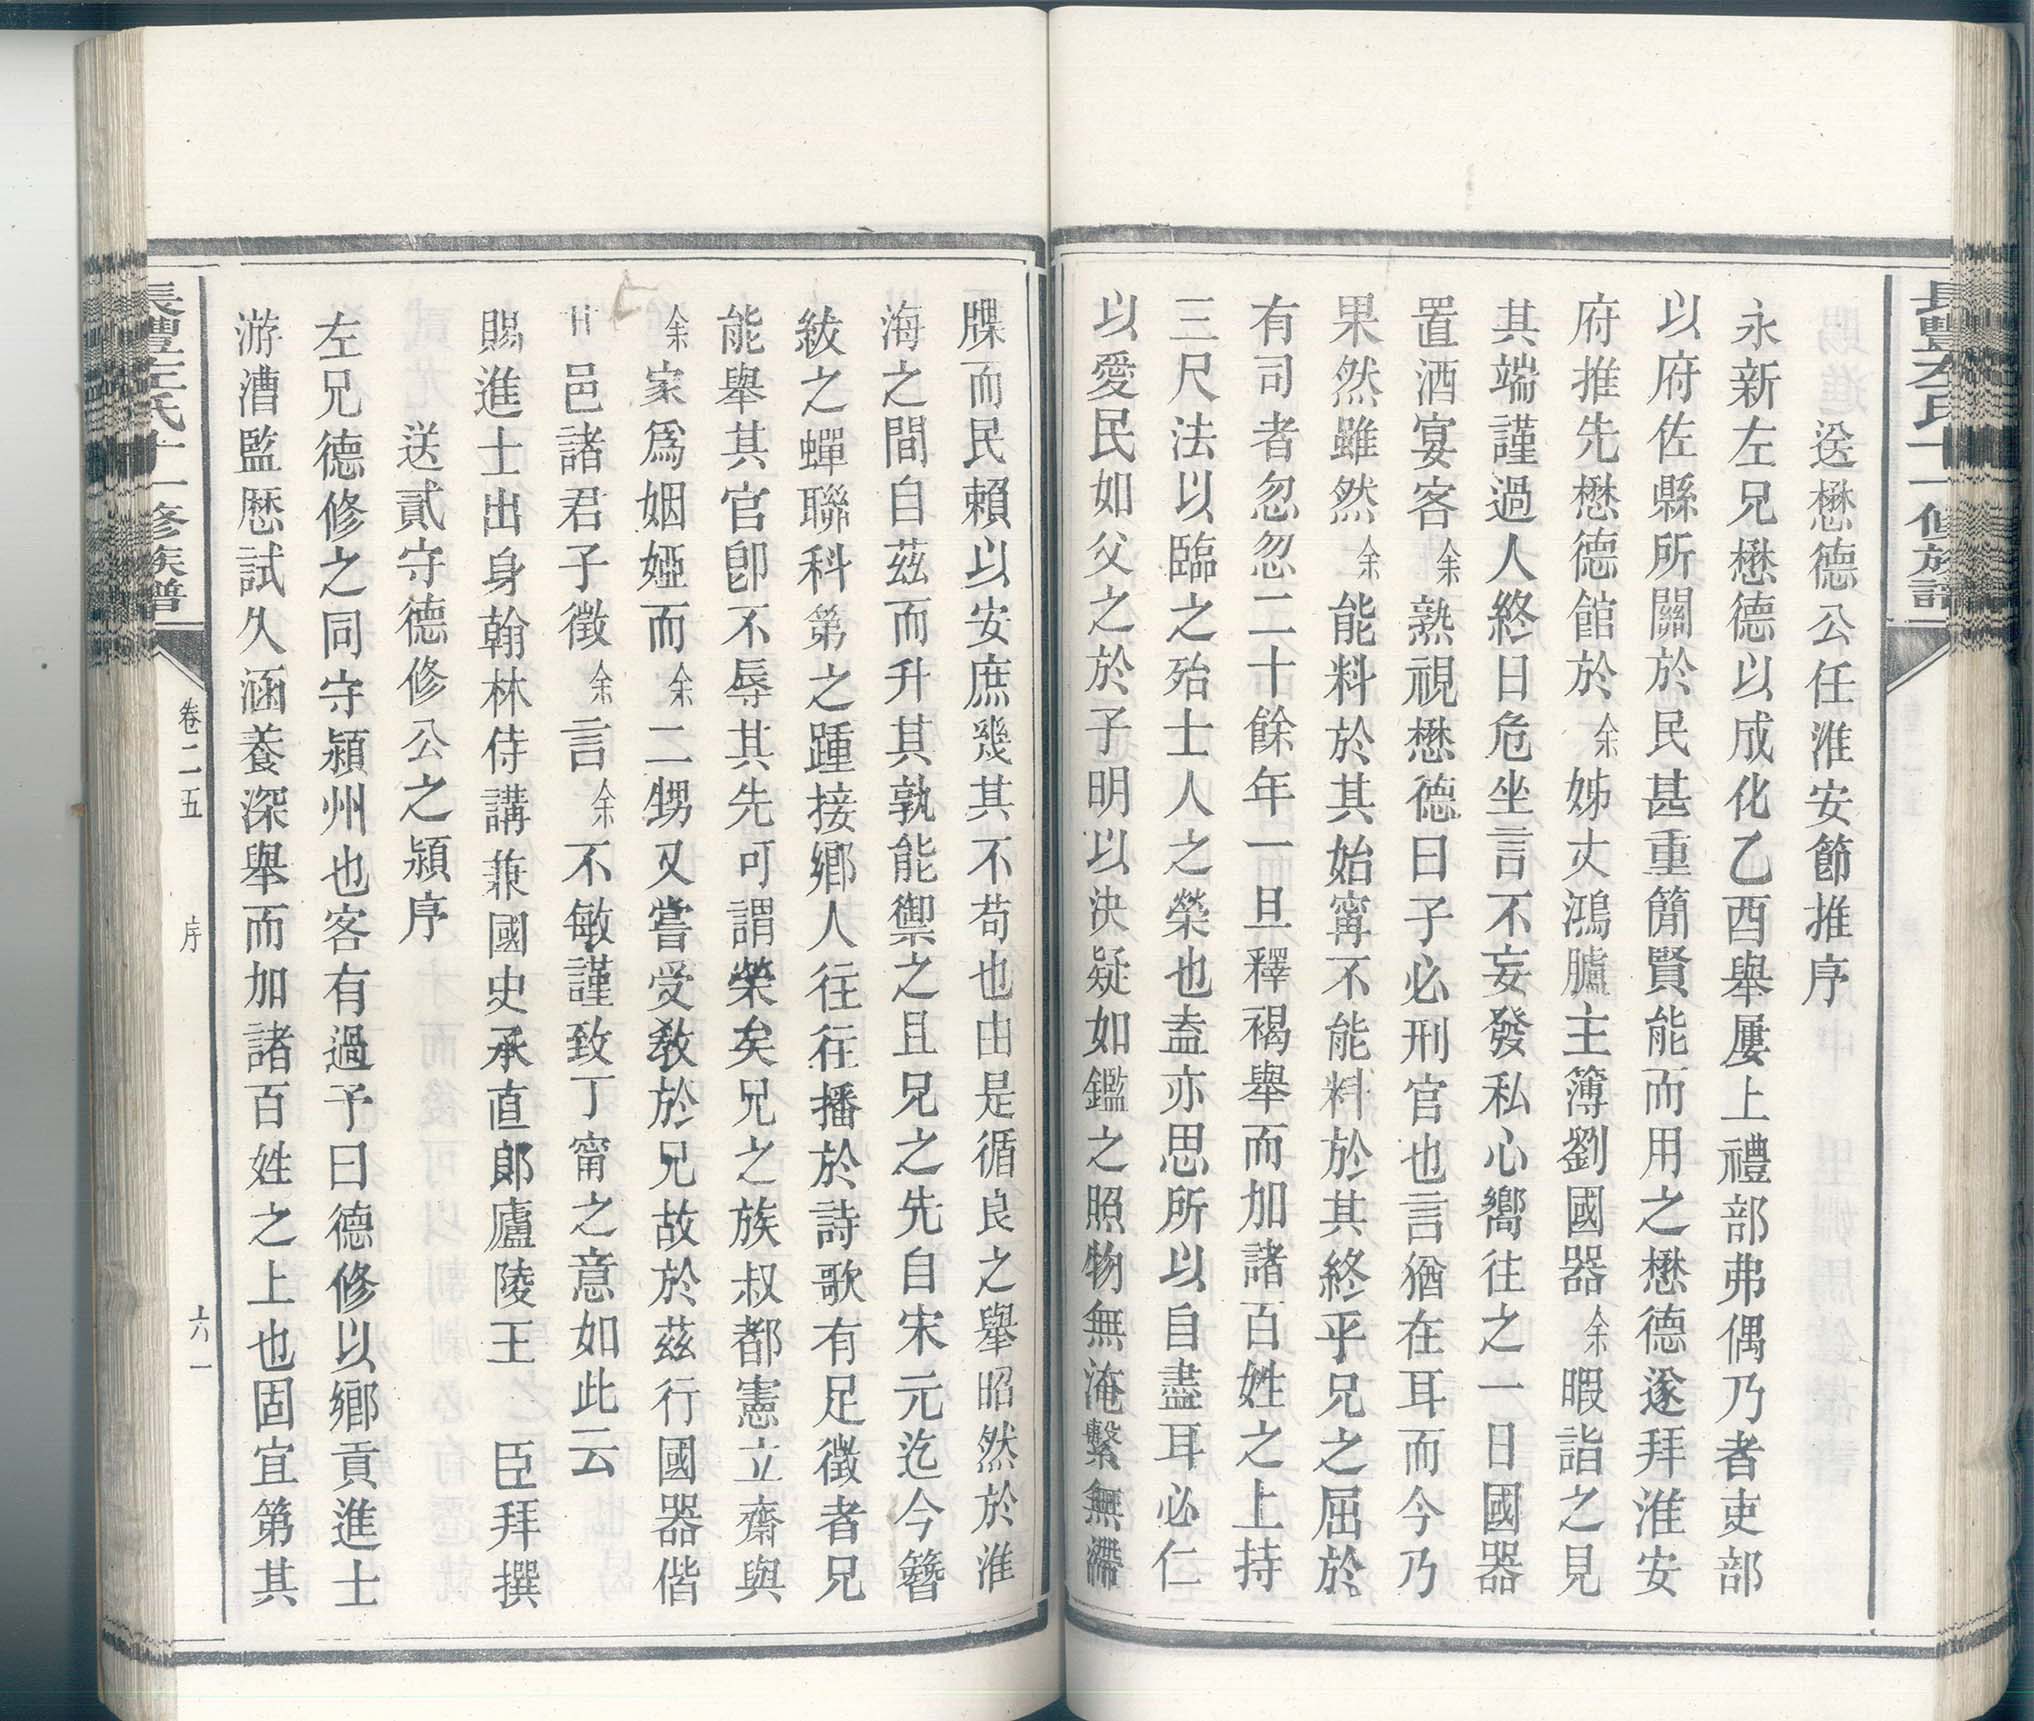 長豐左氏十一修族譜
送懋德公任淮安節推序
永新左兄懋德以成化乙酉舉屢上禮部弗偶乃者吏部
以府佐縣所關於民甚重簡賢能而用之懋德遂拜淮安
府推先懋德館於余姊丈鴻臚主簿劉國器余暇詣之見
其端謹過人終日危坐言不妄發私心嚮往之一日國器
置酒宴客余熟視懋德曰子必刑官也言猶在耳而今乃
果然雖然余能料於其始甯不能料於其終乎兄之屈於
有司者忽忽二十餘年一旦釋褐舉而加諸百姓之上持
三尺法以臨之殆士人之榮也盍亦思所以自盡耳必仁
以愛民如父之於子明以決疑如鑑之照物無淹繫無滯
牒而民賴以安庶幾其不苟也由是循良之舉昭然於淮
海之間自茲而升其孰能禦之且兄之先自宋元迄今簪
紱之蟬聯科第之踵接鄉人往往播於詩歌有足徵者兄
能舉其官卽不辱其先可謂榮矣兄之族叔都憲立齋與
余家爲姻婭而余二甥又嘗受敎於兄故於茲行國器偕
廿邑諸君子徵余言余不敏謹致丁甯之意如此云
賜進士出身翰林侍講兼國史承直郞廬陵王 臣拜撰
送貳守德修公之潁序
左兄德修之同守潁州也客有過予曰德修以鄉貢進士
游漕監歷試久涵養深舉而加諸百姓之上也固宜第其
長豐左氏十一修族譜
卷二五 序 六一